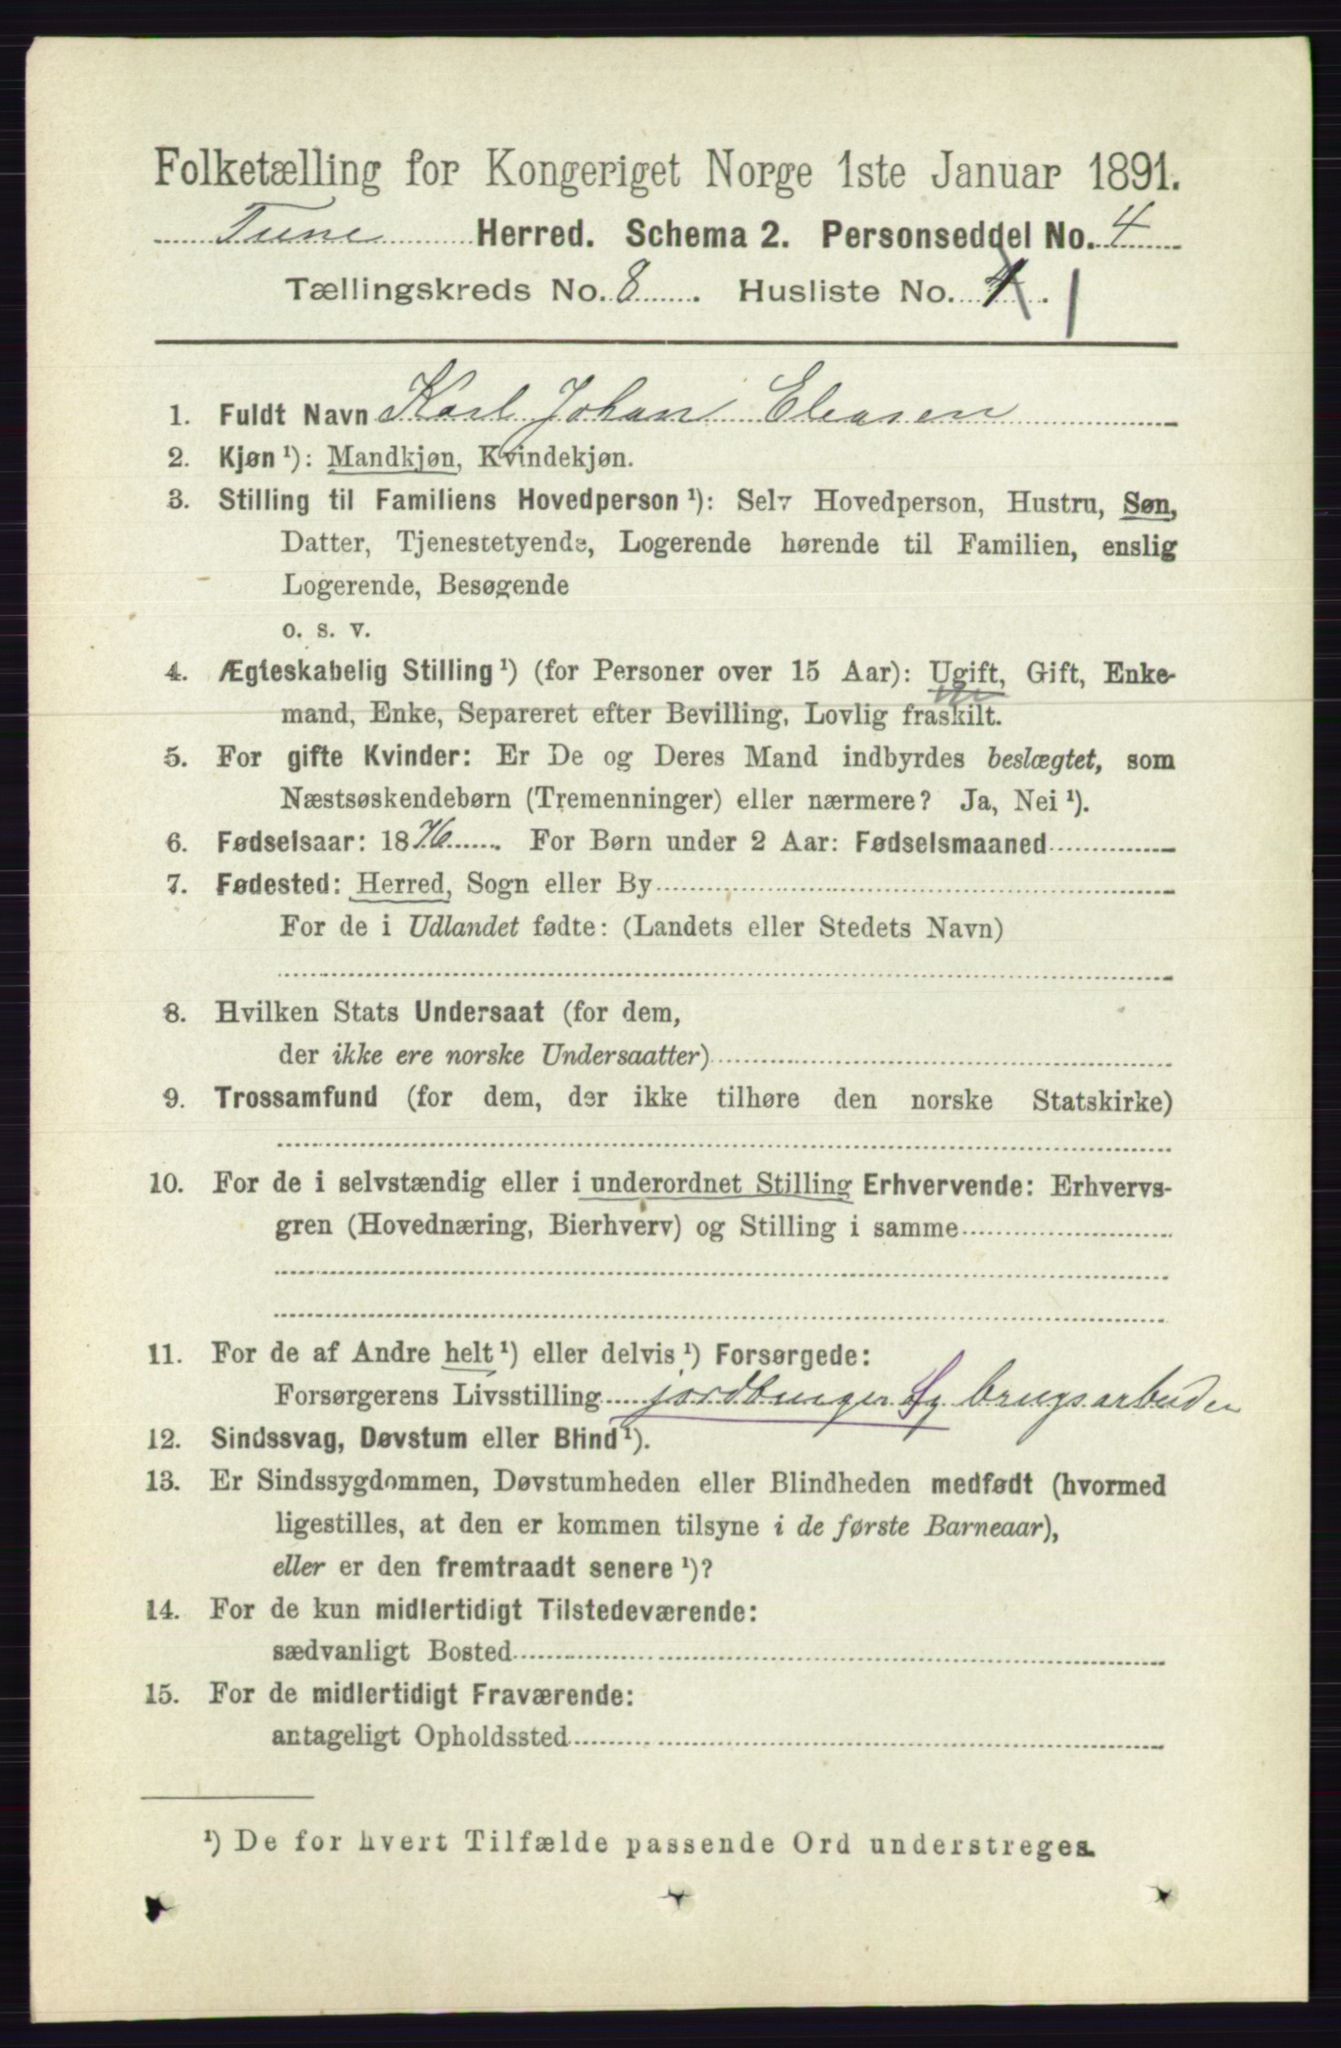 Folketælling for Kongeriget Norge 1ste Januar 1891.
Tune Herred. Schema 2. Personseddel No. 4
Tællingskreds No. 8. Husliste No. 4. 1
1. Fuldt Navn Karl Johan Eleasen
2. Kjøn ¹): Mandkjøn, Kvindekjøn.
3. Stilling til Familiens Hovedperson ¹): Selv Hovedperson, Hustru, Søn,
Datter, Tjenestetyende, Logerende hørende til Familien, enslig
Logerende, Besøgende
o. s. v.
4. Ægteskabelig Stilling ¹) (for Personer over 15 Aar): Ugift, Gift, Enke-
mand, Enke, Separeret efter Bevilling, Lovlig fraskilt.
5. For gifte Kvinder: Er De og Deres Mand indbyrdes beslægtet, som
Næstsøskendebørn (Tremenninger) eller nærmere? Ja, Nei ¹).
6. Fødselsaar: 1876. For Børn under 2 Aar: Fødselsmaaned
7. Fødested: Herred, Sogn eller By
For de i Udlandet fødte: (Landets eller Stedets Navn)
8. Hvilken Stats Undersaat (for dem,
der ikke ere norske Undersaatter)
9. Trossamfund (for dem, der ikke tilhøre den norske Statskirke)
10. For de i selvstændig eller i underordnet Stilling Erhvervende: Erhvervs-
gren (Hovednæring, Bierhverv) og Stilling i samme
11. For de af Andre helt ¹) eller delvis ¹) Forsørgede:
Forsørgerens Livsstilling jordbruger brugsarbeider
12. Sindssvag, Døvstum eller Blind ¹).
13. Er Sindssygdommen, Døvstumheden eller Blindheden medfødt (hvormed
ligestilles, at den er kommen tilsyne i de første Barneaar),
eller er den fremtraadt senere ¹)?
14. For de kun midlertidigt Tilstedeværende:
sædvanligt Bosted
15. For de midlertidigt Fraværende:
antageligt Opholdssted
¹) De for hvert Tilfælde passende Ord understreges.